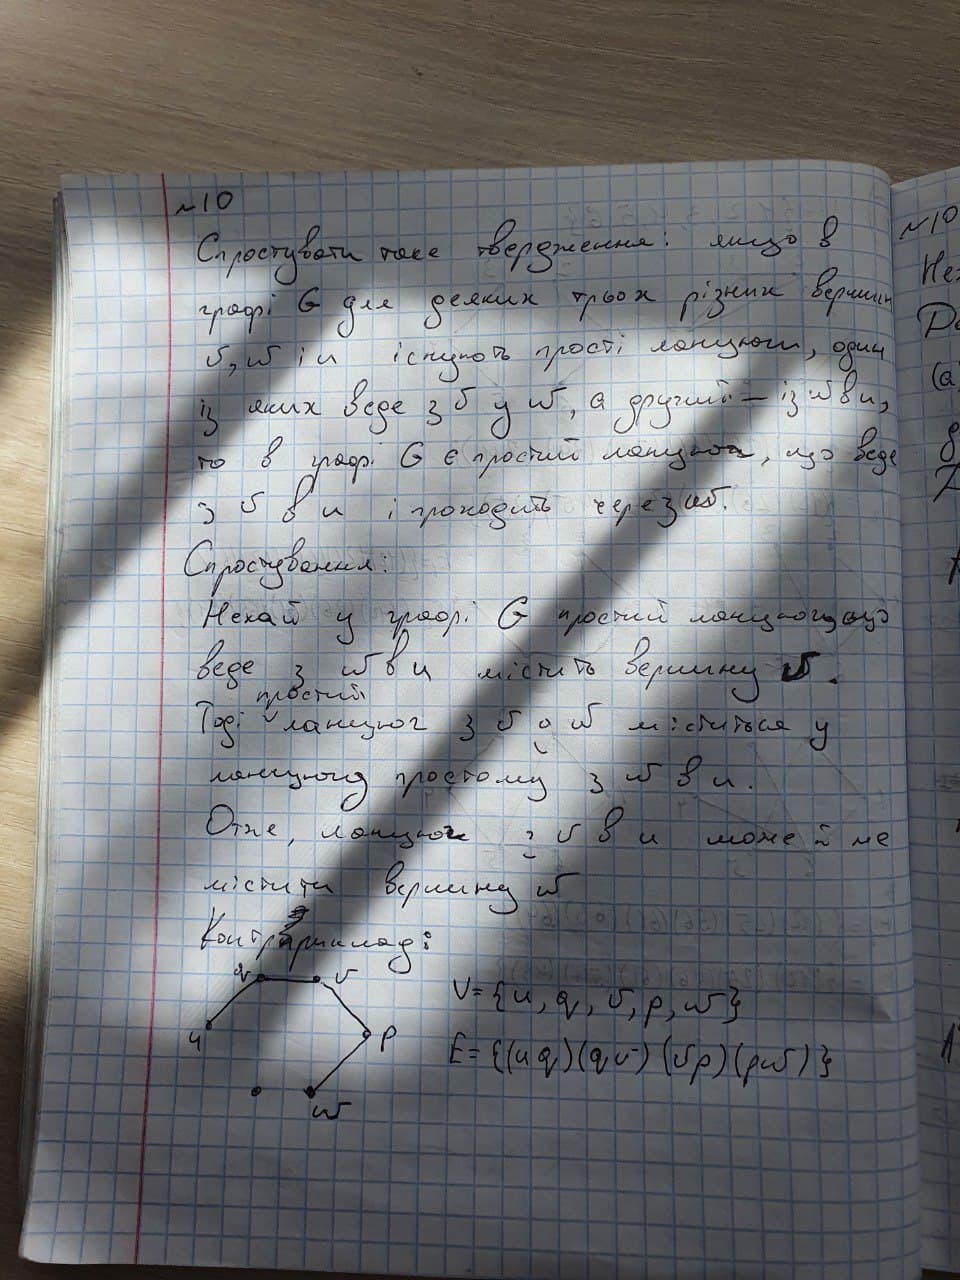 №10
Спростувати таке твердження: якщо в
графі G для деяких трьох різних вершин
v, w і u існують прості ланцюги, один
із яких веде з v у w, а другий – із w в u,
то в графі G є простий ланцюг, що веде
з v в u і проходить через w.
Спростування:
Нехай у графі G простий ланцюг що
веде з w в u містить вершину v.
простий
Тоді ланцюг з v в w міститься у
ланцюгу простому з w в u.
Отже, ланцюг з v в u може й не
містити вершину w
Контрприклад:
q v
u p
w
V = {u, q, v, p, w}
E = {(uq)(qv)(vp)(pw)}
№10
Нех
(а)